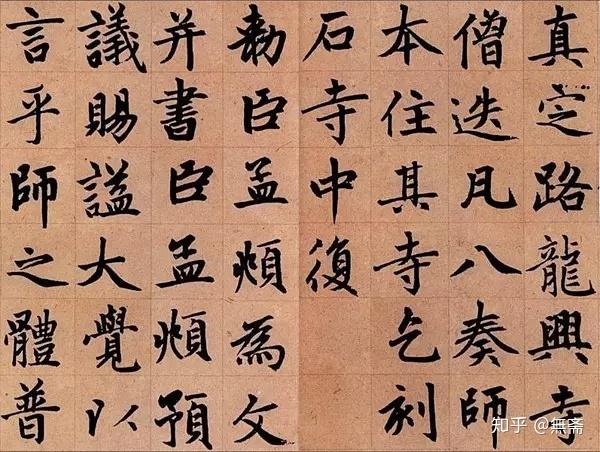 真定路龍興寺
僧迭凡八奏師
本住其寺乞刻
石寺中復
勅臣孟頫為文
并書臣孟頫預
議賜謚大覺以
言乎師之體普
知乎 @無斋